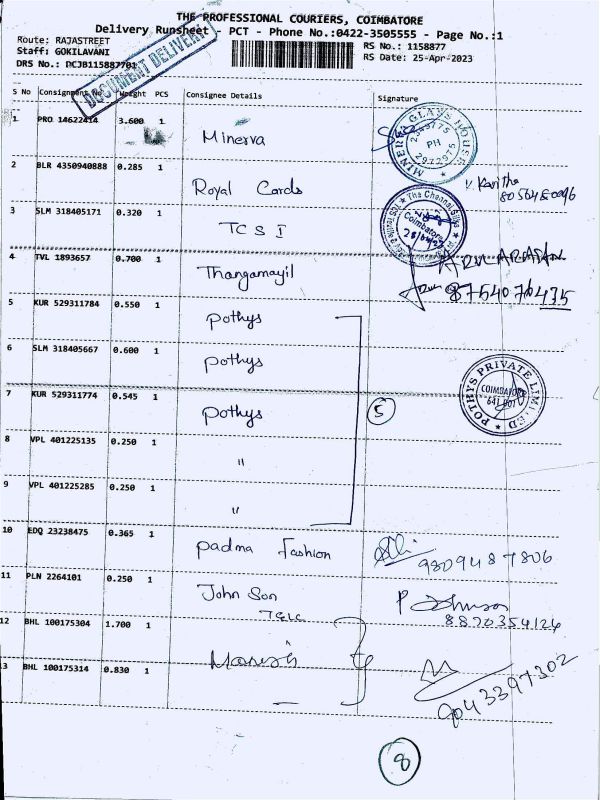 THE PROFESSIONAL COURIERS, COIMBATORE
Delivery Runsheet - PCT - Phone No.:0422-3505555 - Page No.:1
Route: RAJASTREET
RS No.: 1158877
Staff: GOKILAVANI
RS Date: 25-Apr-2023
DRS No.: PCJB115887701
DOCUMENT DELIVERY
S No Consignment No Weight PCS Consignee Details Signature
1 PRO 14622414 3.600 1 Minerva
MINERVA GLASS HOUSE
PH
2 BLR 4350940888 0.285 1 Royal Cards
V. Kavitha
3 SLM 318405171 0.320 1 TCSI
The Chennai Silks
Coimbatore
4 TVL 1893657 0.700 1 Thangamayil
8754070435
5 KUR 529311784 0.550 1 Pothys
6 SLM 318405667 0.600 1 Pothys
POTHYS PRIVATE LIMITED
COIMBATORE
641 001
7 KUR 529311774 0.545 1 Pothys
5
8 VPL 401225135 0.250 1 "
9 VPL 401225285 0.250 1 "
10 EDQ 23238475 0.365 1 Padma Fashion
9809487806
11 PLN 2264101 0.250 1 John Son
P Johnson
8870354126
12 BHL 100175304 1.700 1
13 BHL 100175314 0.830 1
9043397302
8